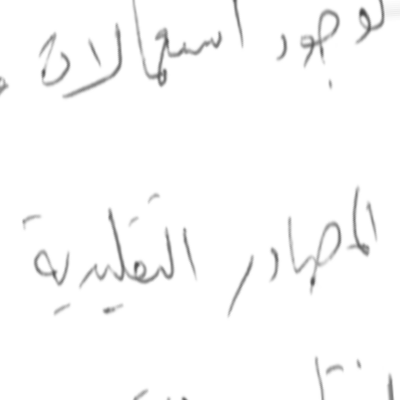 لوجود استعمالات
المصادر التقليدية